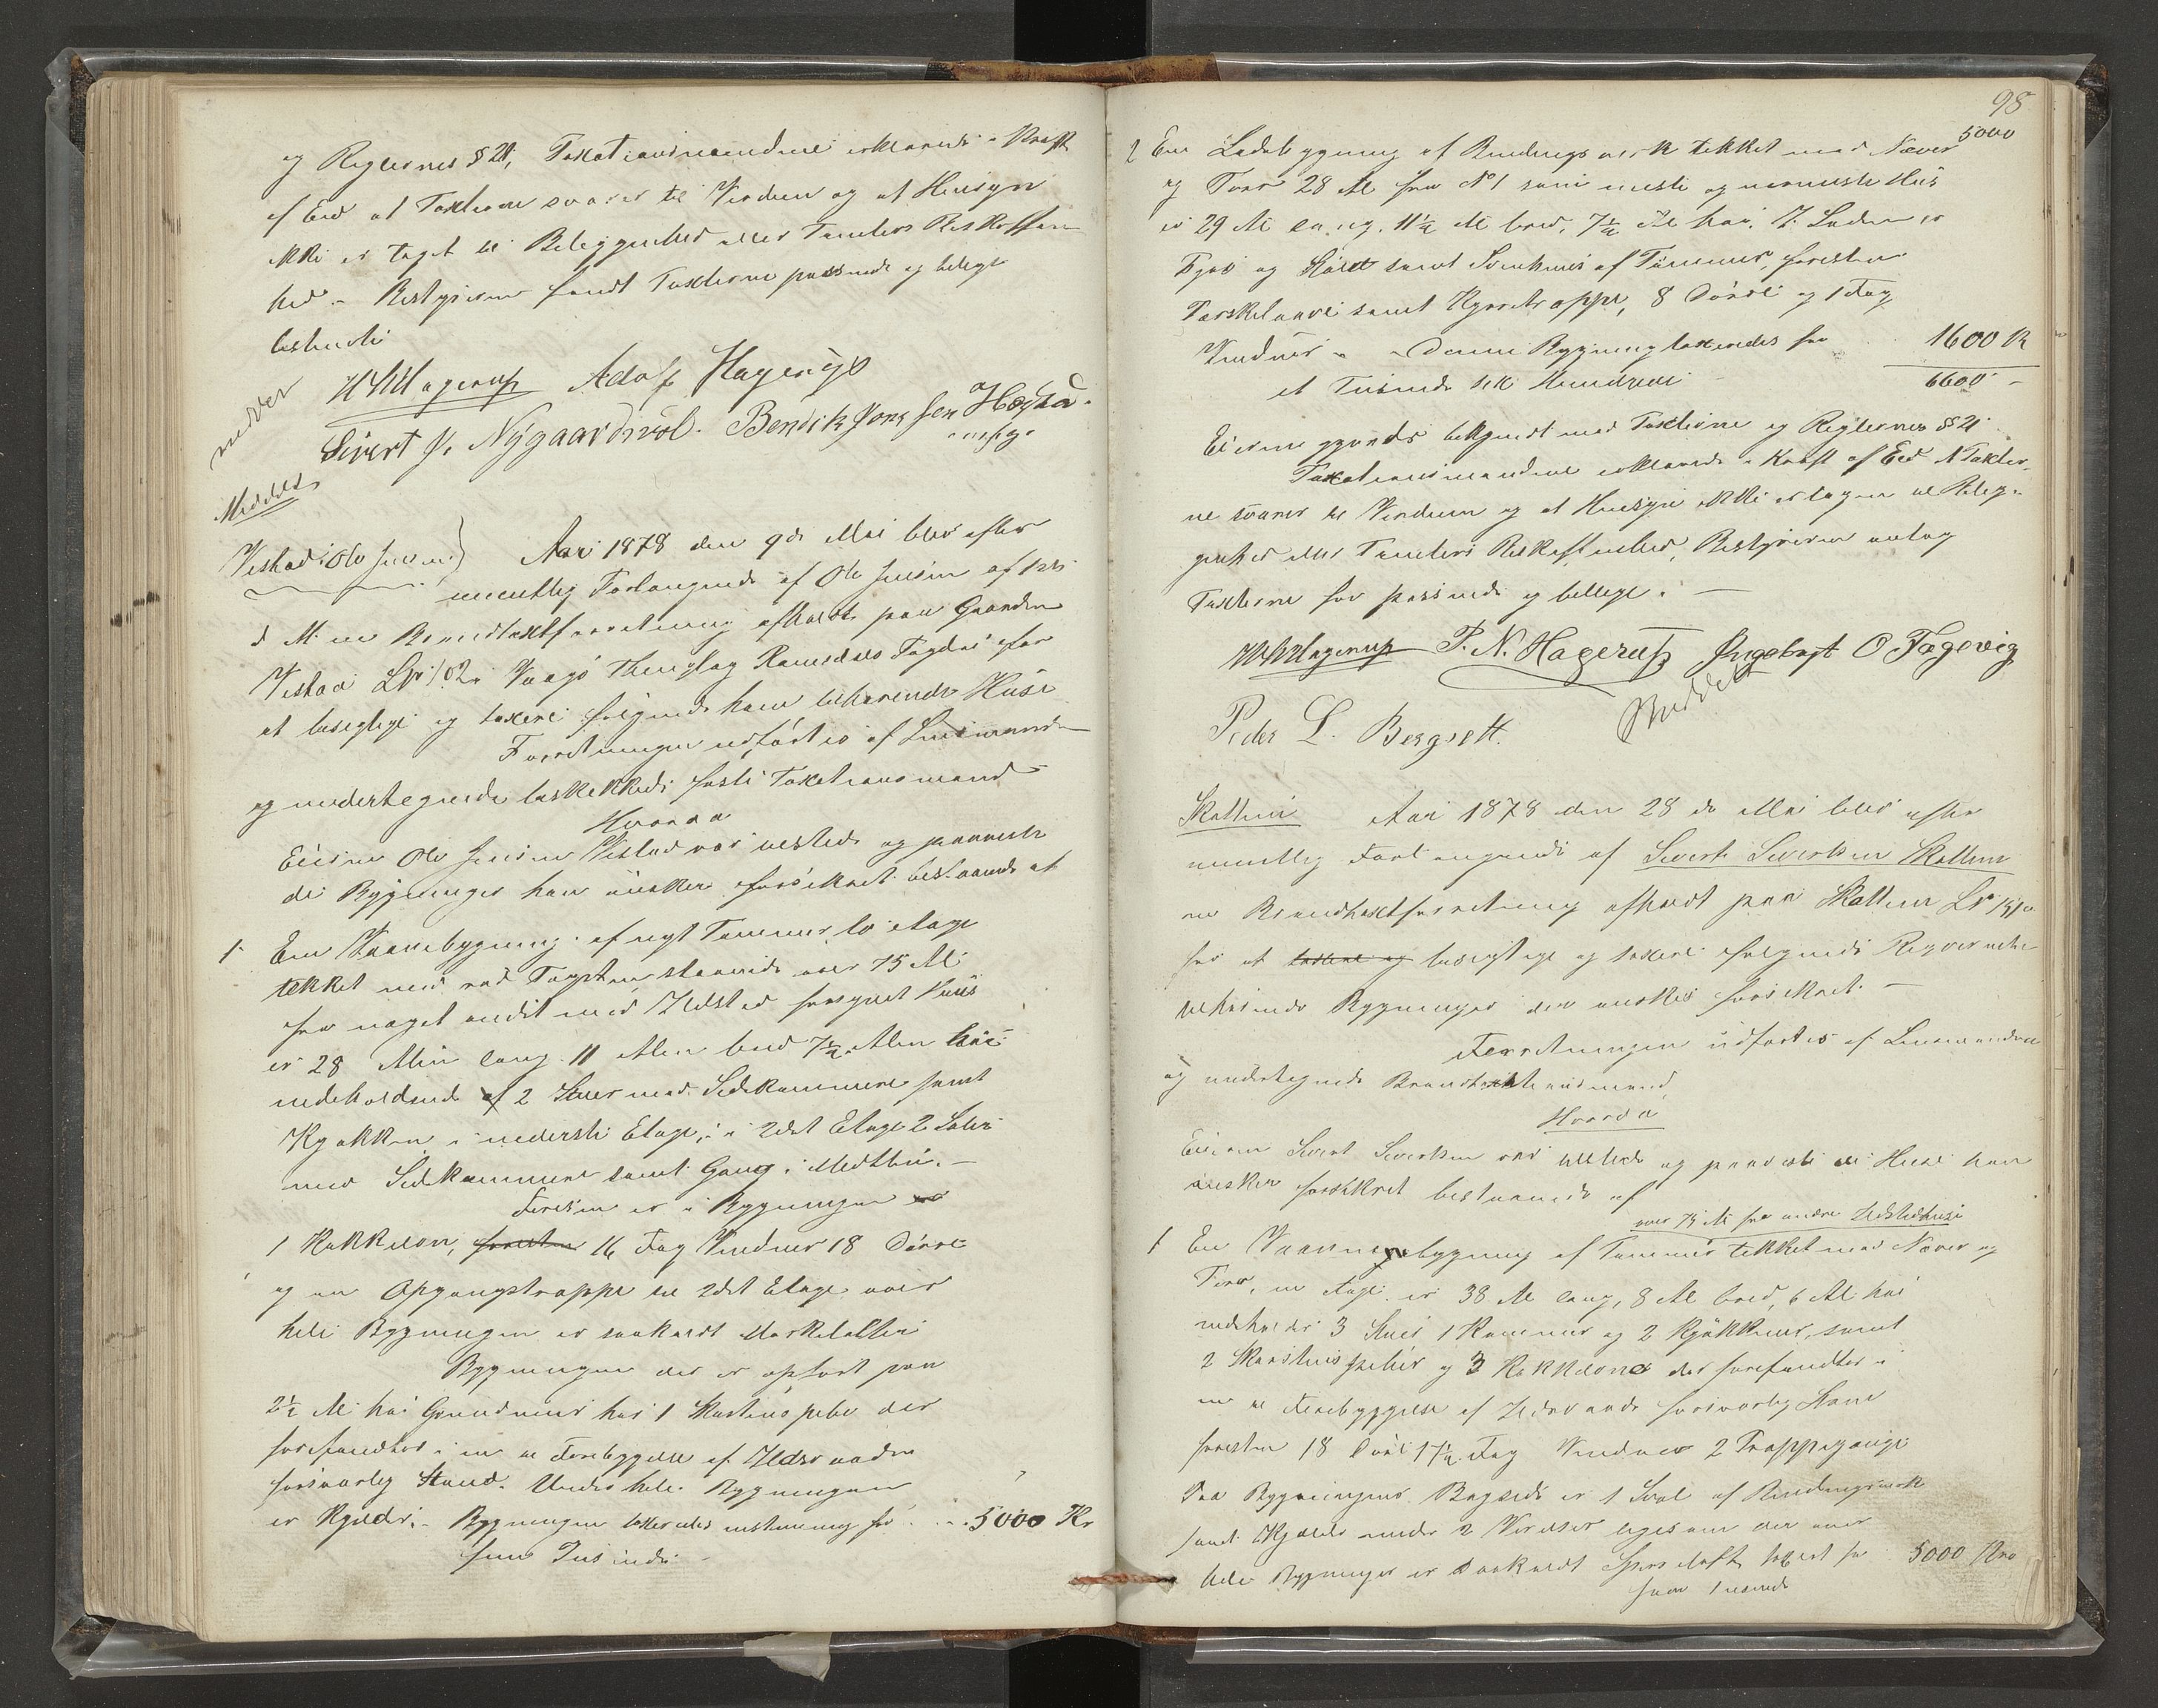 og Reglernes § 21, Taxationsmændene erklærede i Kraft
af Eed at Taxterne svarer til Værdien og at Hensyn
ikke er taget til Beliggenhed eller Tomters Beskaffen-
hed. Bestyreren fandt Taxterne passende og billige
bestemte
WHHagerup Adolf Hagerup
Sivert J. Nygaardsvol. Bendik Jonssen
m. p. P.
Meddelt
Vestad Ole Jensen) Aar 1878 den 9de Mai blev efter
mundtlig Forlangende af Ole Jensen af 1ste
d M. en Brandtaxtforretning afholdt paa Gaarden
Vestad LN 102 i Vaagø Thinglag Romsdals Fogderi for
at besigtige og taxere følgende ham tilhørende Huse
Forretningen udførtes af Lensmanden
og undertegnede beskikkede faste Taxationsmænd
Hvorda
Eieren Ole Jensen Vestad var tilstede og paaviste
de Bygninger han ønsker forsikret bestaaende af
1 En Vaanebygning af nyt Tømmer, to etage
tekket med rød Tagsten, staaende over 75 Al.
fra noget andet med Ildsted forsynet Huus
er 28 Alen lang 11 Alen bred 7½ Alen høi
indeholdende af 2 Stuer med Sidekammere samt
Kjøkken i nederste Etage, i 2det Etage 2 Saler
med Sidekammere samt Gang i Midten. —
Foresten er i Bygningen
1 Kakkelovn, foresten 16 Fag Vinduer 18 Dørre
og en Opgangstrappe til 2det Etage over
hele Bygningen er saakaldt Mørkelofter
Bygningen der er opført paa
2½ Al. høi Grundmuur har 1 Skorstenspibe der
forefandtes i en til Forebyggelse af Ildsvaade
forsvarlig Stand. Under hele Bygningen
er Kjelder. Bygningen taxeredes enstemmig for 5000 Kr
fem Tusinde
98
5000
2 En Ladebygning af Bindingsværk tekket med Næver
og Torv 28 Al fra No 1 som næste og nærmeste Huus
er 29 Al lang, 11½ Al bred, 7½ Al høi. I Laden er
Fjøs og Stald samt Svinehuus af Tømmer, foresten
Tærskelaave samt Kjøretrappe, 8 Dørre og 1 Fag
Vinduer. Denne Bygning taxeredes for 1600 K
et Tusinde sex Hundrede 6600 -
Eieren gjordes bekjendt med Taxterne og Reglernes § 21
Taxationsmændene erklærede i Kraft af Eed at Taxter-
ne svarer til Værdien og at Hensyn ikke er tagen til Belig-
genhed eller Tomters Beskaffenhed, Bestyreren antog
Taxterne for passende og billige. —
WHHagerup P. N. Hagerup Ingebrigt O Fagervig
Peder L. Bergset. Meddelt
Skottem Aar 1878 den 28 de Mai blev efter
mundtlig Forlangende af Sivert Sivertsen Skottem
en Brandtaxtforretning afholdt paa Skottem LN
for at taxere og besigtige og taxere følgende
tilhørende Bygninger der ønskes forsikret. —
Forretningen udførtes af Lensmanden
og undertegnede Brandtaxtionsmænd
Hvorda
Eieren Sivert Sivertsen var tilstede og paaviste de Huse han
ønsker forsikret bestaaende af
over 75 Al fra andre Ildstedhuse
1 En Vaanebygning af Tømmer tekket med Næver og
Torv, en Etage er 38 Al lang, 8 Al bred, 6 Al høi
indeholder 3 Stuer 1 Kammer og 2 Kjøkkener, samt
2 Skorstenspiber og 3 Kakkelovne der forefandtes i
en til Forebyggelse af Ildsvaade forsvarlig Stand
foresten 18 Døre 17½ Fag Vinduer 2 Trappegange
Paa Bygningens Bagside er 1 Sval af Bindingsverk
samt Kjelder under 2 Værelser ligesom der over
hele Bygningen er saakaldt Sperreloft taxert for 5000 Kro
fem Tusinde